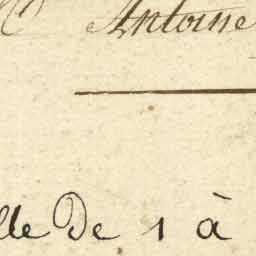 Antoine
lle De 1 à